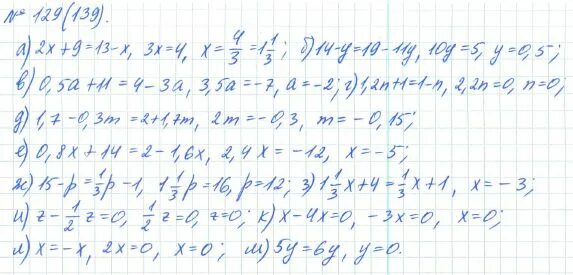 № 129(139).
а) 2x+9=13-x, 3x=4, x=4/3=1 1/3; б) 14-y=19-11y, 10y=5, y=0,5;
в) 0,5a+11=4-3a, 3,5a=-7, a=-2; г) 1,2n+1=1-n, 2,2n=0, n=0;
д) 1,7-0,3m=2+1,7m, 2m=-0,3, m=-0,15;
е) 0,8x+14=2-1,6x, 2,4x=-12, x=-5;
ж) 15-p=1/3p-1, 1 1/3p=16, p=12; з) 1 1/3x+4=1/3x+1, x=-3;
и) z-1/2z=0, 1/2z=0, z=0; к) x-4x=0, -3x=0, x=0;
л) x=-x, 2x=0, x=0; м) 5y=6y, y=0.